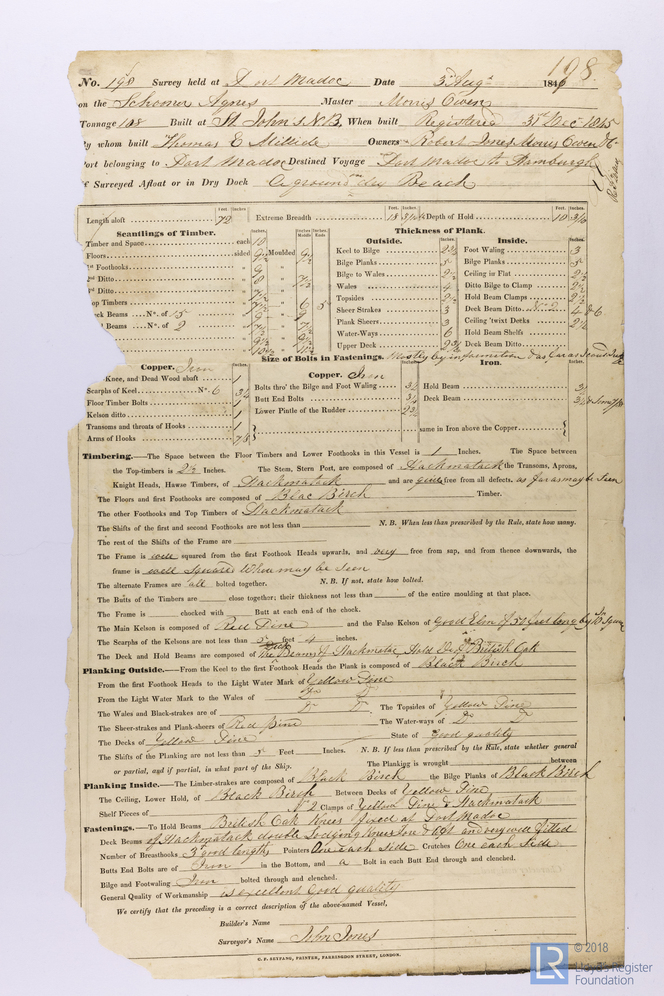 198
No. 198 Survey held at Port Madoc Date 3rd Augt 1846
on the Schooner Agnes Master Morris Owen
Tonnage 108 Built at St John's N.B. When built Registered 31st Dec 1845
By whom built Thomas E Millidge Owners Robert Jones Morris Owen &c
Port belonging to Port Madoc Destined Voyage Port Madoc to Hamburgh
if Surveyed Afloat or in Dry Dock Aground on dry Beach
Feet. Inches. Feet. Inches. Feet. Inches.
Length aloft 72 Extreme Breadth 18 Depth of Hold 10
Scantlings of Timber.
Timber and Space each 10
Floors sided 9½ Moulded 9½
1st Foothooks 9
2nd Ditto 8 7½
3rd Ditto 7½
Top Timbers 7½ 6 5
Deck Beams No. of 15 9 9
Beams No. of 2
Thickness of Plank.
Outside.
Keel to Bilge 2½
Bilge Planks 5
Bilge to Wales 2½
Wales 4
Topsides 2½
Sheer Strakes 3
Plank Sheers 3
Water-Ways 6
Upper Deck 2¾
Inside.
Foot Waling 3
Bilge Planks 5
Ceiling in Flat 2½
Ditto Bilge to Clamp 2½
Hold Beam Clamps 2½
Deck Beam Ditto No 2 4 & 6
Ceiling 'twixt Decks 2½
Hold Beam Shelfs
Deck Beam Ditto
Size of Bolts in Fastenings. Mostly by information & as far as
Copper. Iron
Knee, and Dead Wood abaft 1
Scarphs of Keel No. 6 3/4
Floor Timber Bolts 1
Kelson ditto 1
Transoms and throats of Hooks 1
Arms of Hooks 7/8
Copper. Iron
Bolts thro' the Bilge and Foot Waling 3/4
Butt End Bolts 3/4
Lower Pintle of the Rudder 2¾
Iron.
Hold Beam
Deck Beam
same in Iron above the Copper
Timbering.—The Space between the Floor Timbers and Lower Foothooks in this Vessel is 1 Inches. The Space between
the Top-timbers is 2½ Inches. The Stem, Stern Post, are composed of Hackmatack the Transoms, Aprons,
Knight Heads, Hawse Timbers, of Hackmatack and are quite free from all defects. as far as may be Seen
The Floors and first Foothooks are composed of Blac Birch Timber.
The other Foothooks and Top Timbers of Hackmatack
The Shifts of the first and second Foothooks are not less than N. B. When less than prescribed by the Rule, state how many.
The rest of the Shifts of the Frame are
The Frame is well squared from the first Foothook Heads upwards, and very free from sap, and from thence downwards, the
frame is well square when may be Seen
The alternate Frames are all bolted together. N. B. If not, state how bolted.
The Butts of the Timbers are close together; their thickness not less than of the entire moulding at that place.
The Frame is chocked with Butt at each end of the chock.
The Main Kelson is composed of Red Pine and the False Kelson of good Elm of 30 feet long by 10 Square
The Scarphs of the Kelsons are not less than 5 feet 4 inches.
The Deck and Hold Beams are composed of Deck Beams of Hackmatac Hold Do of British Oak
Planking Outside.—From the Keel to the first Foothook Heads the Plank is composed of Black Birch
From the first Foothook Heads to the Light Water Mark of Yellow Pine
From the Light Water Mark to the Wales of Do Do
The Wales and Black-strakes are of Do Do The Topsides of Yellow Pine
The Sheer-strakes and Plank-sheers of Red Pine The Water-ways of Do Do
The Decks of Yellow Pine State of Good quality
The Shifts of the Planking are not less than 5 Feet Inches. N. B. If less than prescribed by the Rule, state whether general
or partial, and if partial, in what part of the Ship. The Planking is wrought between
Planking Inside.—The Limber-strakes are composed of Black Birch the Bilge Planks of Black Birch
The Ceiling, Lower Hold, of Black Birch Between Decks of Yellow Pine
Shelf Pieces of No 2 Clamps of Yellow Pine & Hackmatack
Fastenings.—To Hold Beams British Oak Knees fixed at Port Madoc
Deck Beams of Hackmatack double Lodging Knees Iron & light and very well fitted
Number of Breasthooks 3 good length, Pointers One each Side Crutches One each Side
Butts End Bolts are of Iron in the Bottom, and a Bolt in each Butt End through and clenched.
Bilge and Footwaling Iron bolted through and clenched.
General Quality of Workmanship is excellent Good quality
We certify that the preceding is a correct description of the above-named Vessel,
Builder's Name
Surveyor's Name John Jones
G. F. SEYFANG, PRINTER, FARRINGDON STREET, LONDON.
LR
© 2018
Lloyd's Register
Foundation